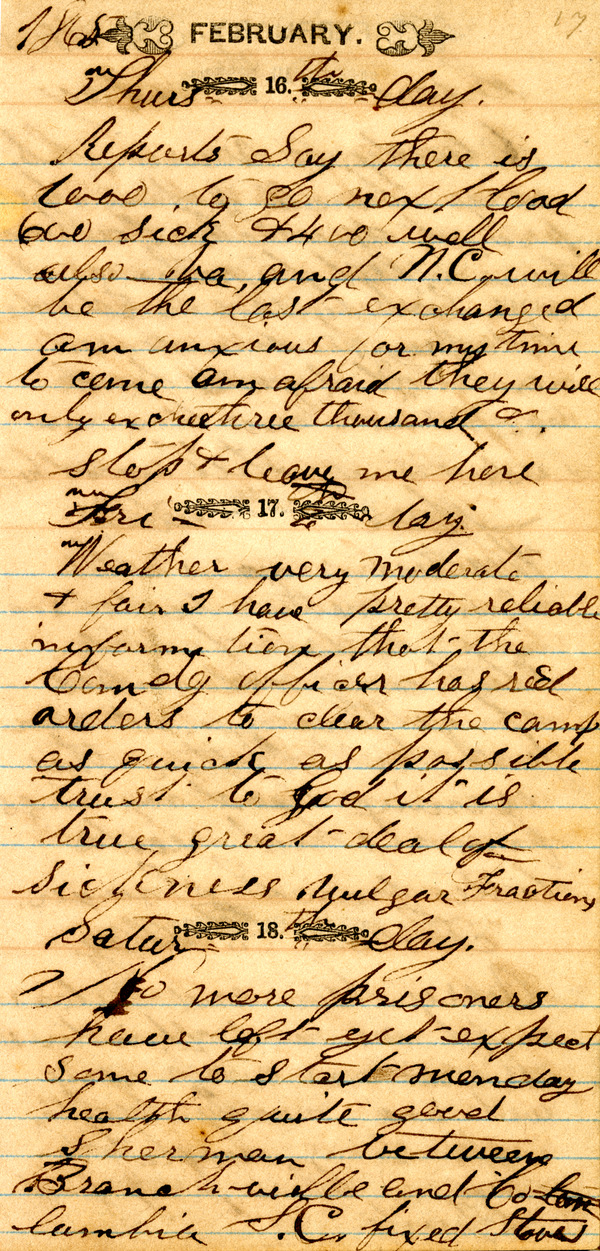 1865 FEBRUARY. 17
Thurs 16. th day.
Reports Say there is
1000 to go next load
600 sick & 400 well
also Va. and N.C. will
be the last exchanged
am anxious for my time
to come am afraid they will
only exchee three thousand &.
stop & leave me here
Fri 17. th day.
Weather very moderate
& fair I have pretty reliable
information that the
Comdg officer has recd
orders to clear the camp
as quick as possible
trust to God it is
true great deal of
sickness Vulgar Fractions
Satur 18. th day.
No more prisoners
have left yet expect
some to start monday
health quite good
Sherman between
Branchville and Co
lumbia S.C. fixed Stove